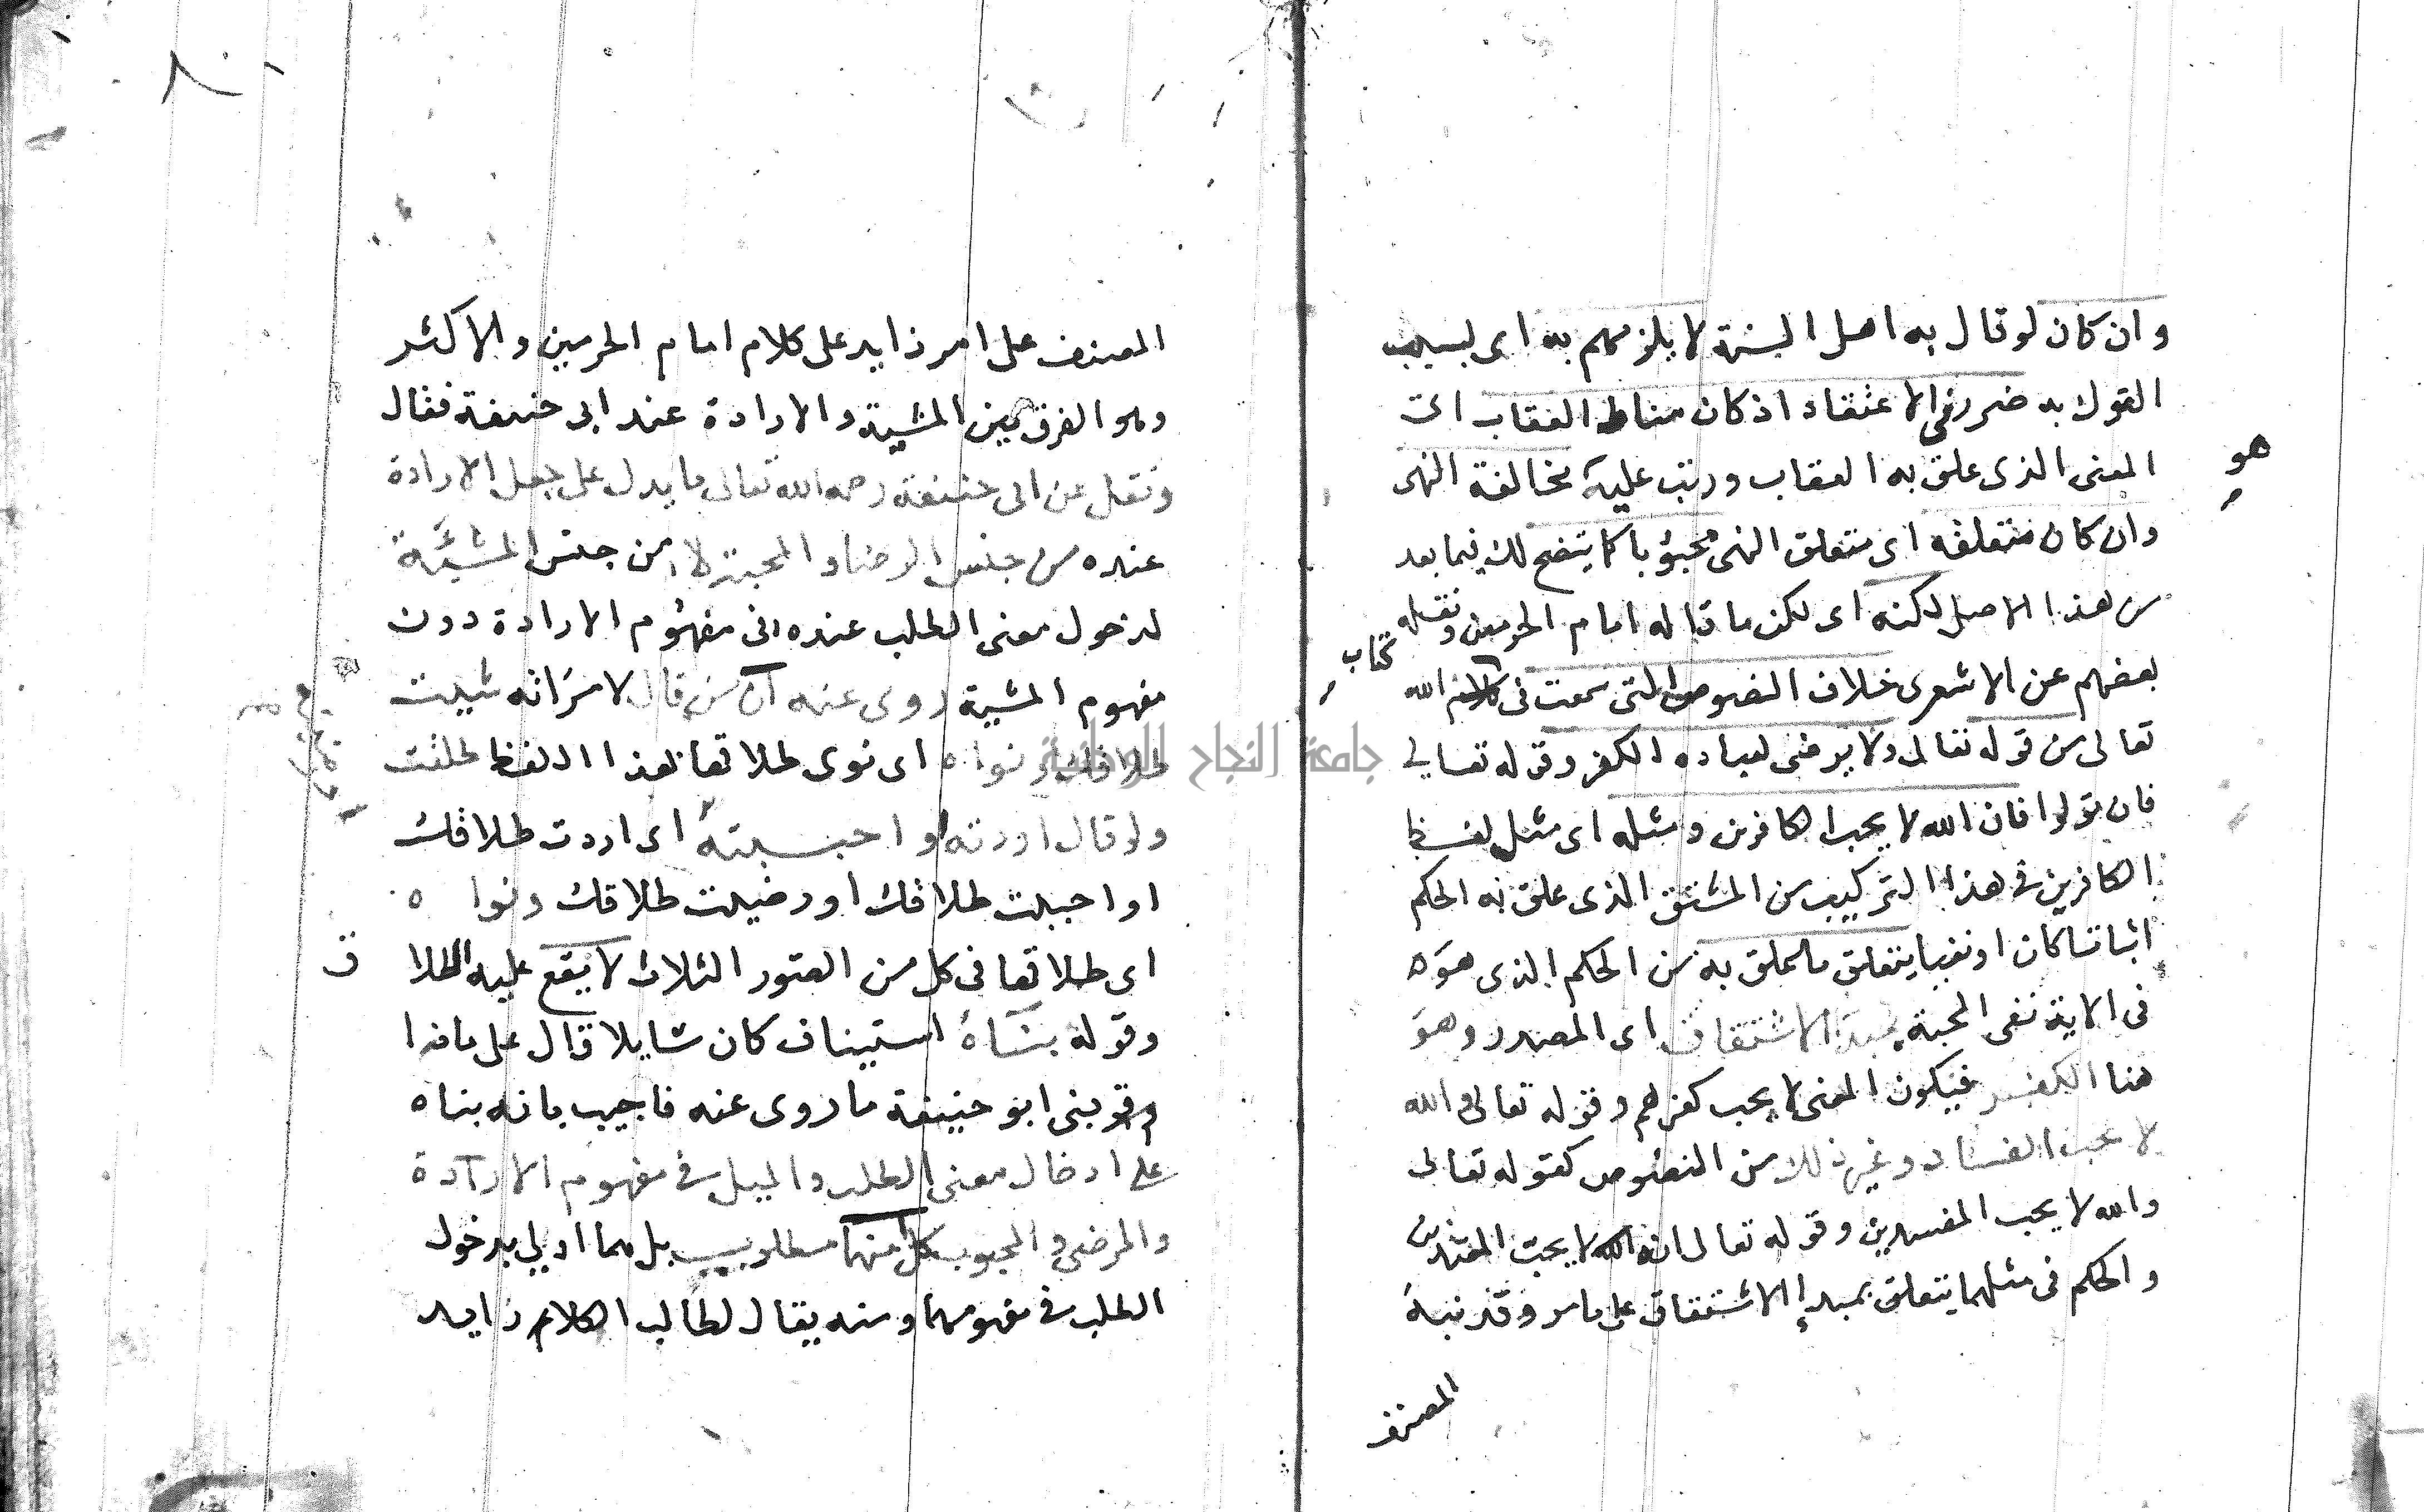 وان كان لو قال به اهل السنة لا يلزمهم به اى بسبب
القول به ضرر فى الاعتقاد اذ كان مناط العقاب اى
المعنى الذى علق به العقاب ورتب عليه مخالفة النهى
هو
وان كان متعلقه اى متعلق النهى محبوبا كما يتضح لك فيما بعد
من هذا الاصل لكنه اى لكن ما قاله امام الحرمين ونقله
بعضهم عن الاشعرى خلاف النصوص التى سمعت فى كلام الله
كتاب
تعالى من قوله تعالى ولا يرضى لعباده الكفر وقوله تعالى
فان تولوا فان الله لا يحب الكافرين ومثله اى مثل لفظ
الكافرين فى هذا التركيب من المشتق الذى علق به الحكم
اثباتا كان او نفيا يتعلق ما علق به من الحكم الذى هو
فى الاية نفى المحبة بمبدا الاشتقاق اى المصدر وهو
هنا الكفر فيكون المعنى لا يحب كفرهم وقوله تعالى والله
لا يحب الفساد وغير ذلك من النصوص كقوله تعالى
والله لا يحب المفسدين وقوله تعالى ان الله لا يحب المعتدين
والحكم فى مثلهما يتعلق بمبدإ الاشتقاق على ما مر وقد نبه
المصنف
٨٠
المصنف على امر زايد على كلام امام الحرمين والاكثر
وهو الفرق بين المشية والارادة عند ابى حنيفة فقال
ونقل عن ابى حنيفة رحمه الله تعالى ما يدل على جعل الارادة
عنده من جنس الرضا والمحبة لا من جنس المشيئة
لدخول معنى الطلب عنده فى مفهوم الارادة دون
مفهوم المشية روى عنه ان من قال لامراته شيت
طلاقك ونواه اى نوى طلاقها بهذا اللفظ طلقت
ولو قال اردته او احببته اى اردت طلاقك
او احببت طلاقك او رضيت طلاقك ونواه
اى طلاقها فى كل من الصور الثلاث لا يقع عليه الطلا
ق
وقوله بناه استيناف كان سايلا قال على ماذا
بنى ابو حنيفة ما روى عنه فاجيب بانه بناه
على ادخال معنى الطلب والميل فى مفهوم الارادة
والمرضى والمحبوب كل منهما مطلوب بل هما اولى بدخول
الطلب فى مفهومهما ومنه يقال لطالب الكلام رايد
جامعة النجاح الوطنية